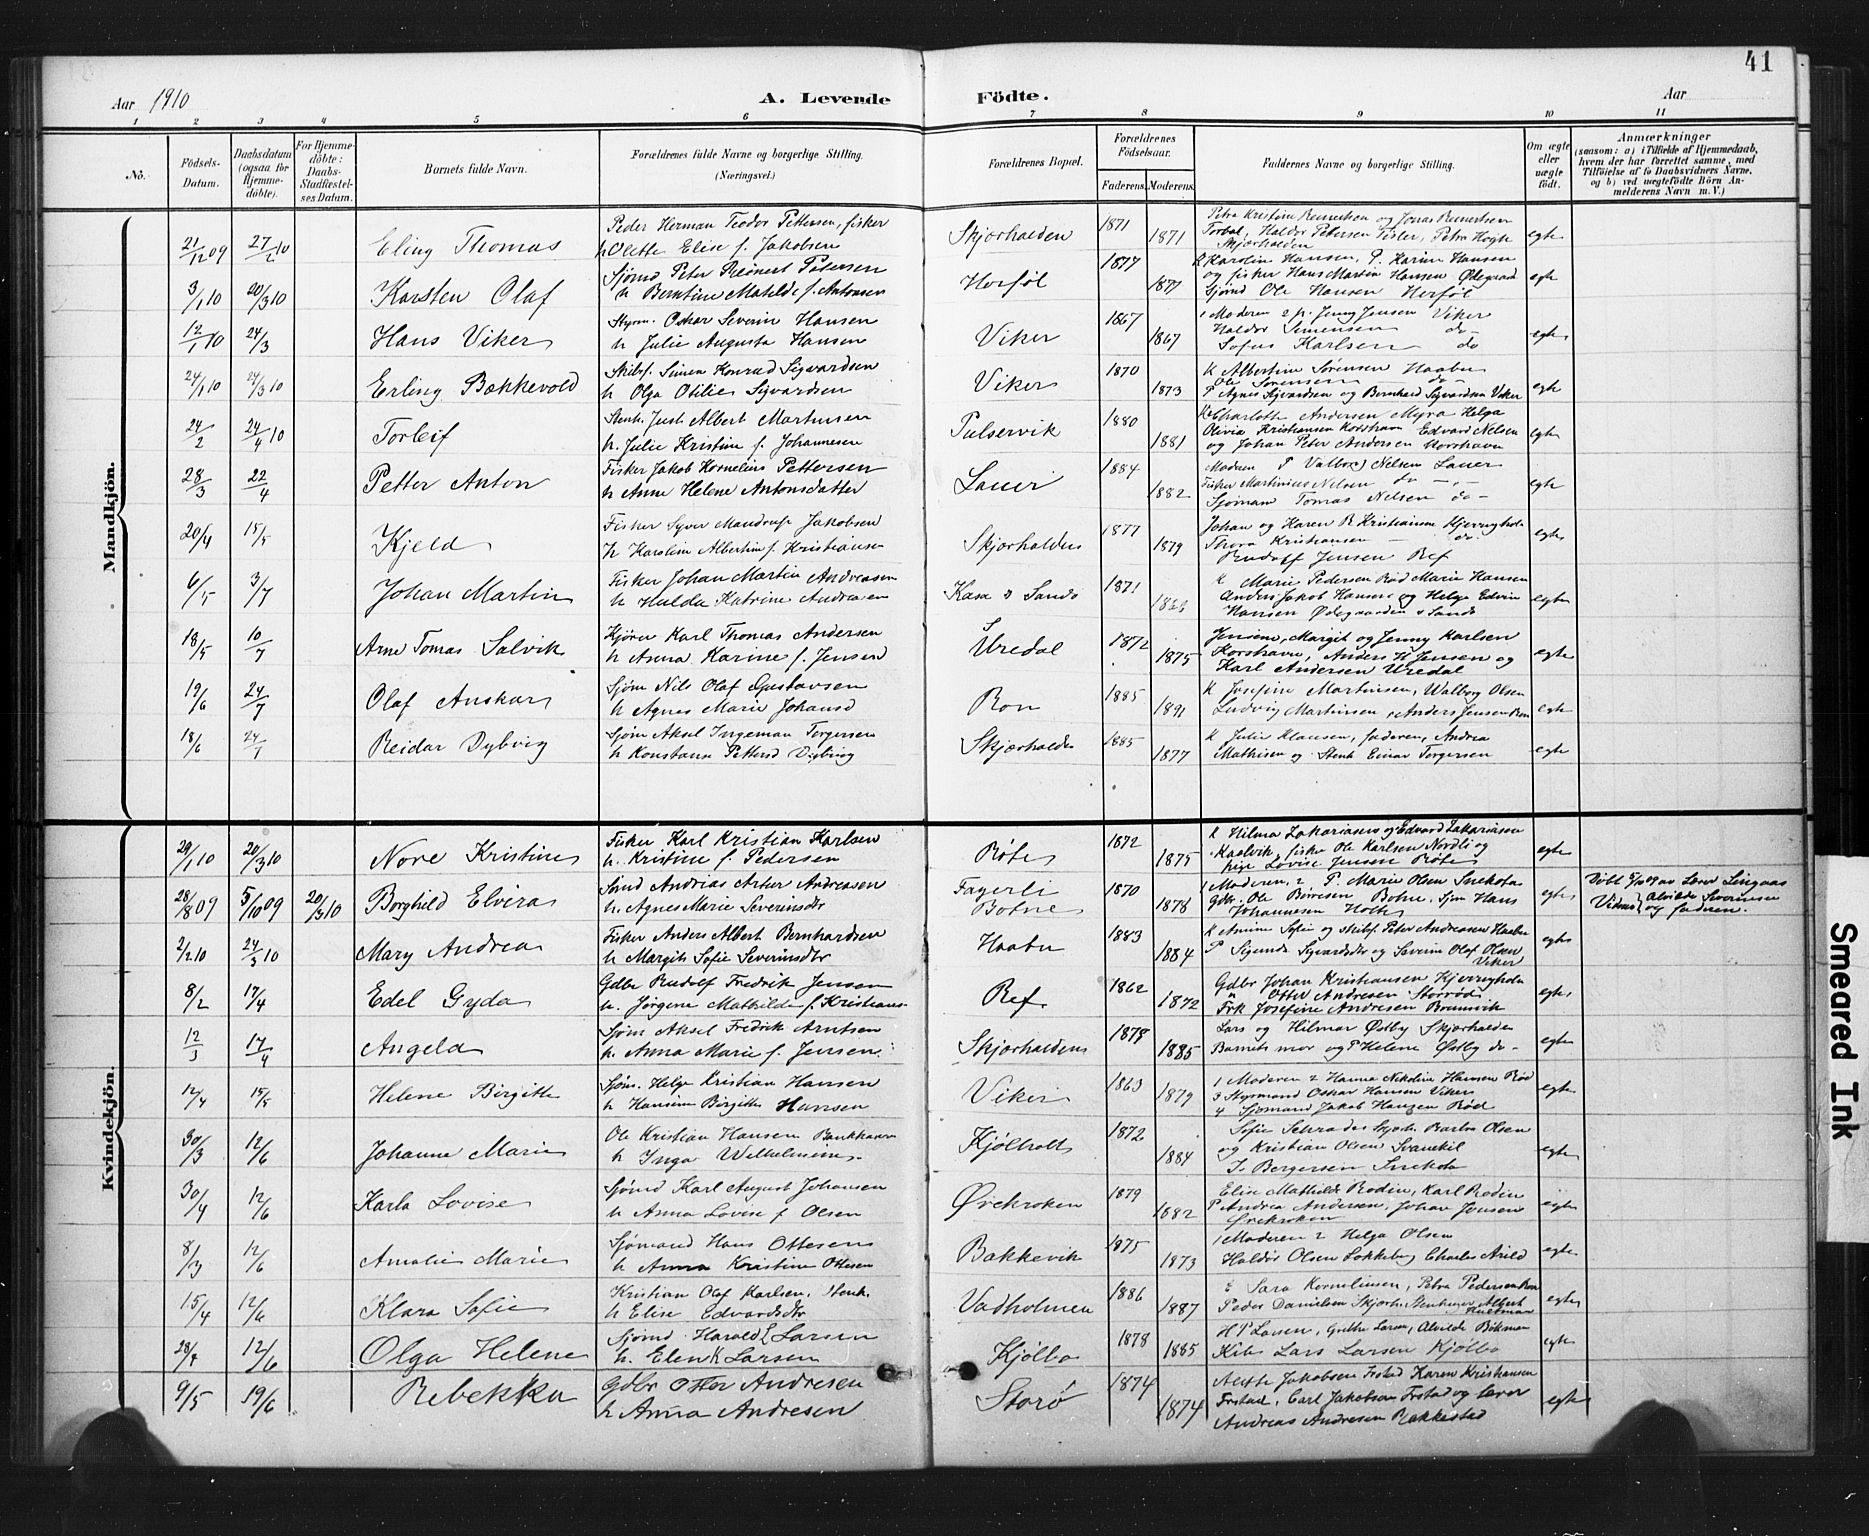 41
Aar 1910
A. Levende Födte.
Aar
1 2 3 4 5 6 7 8 9 10 11
No.
Födsels-Datum.
Daabsdatum (ogsaa for Hjemme-döbte).
For Hjemme-döbte: Daabs-Stadfæstel-ses Datum.
Barnets fulde Navn.
Forældrenes fulde Navne og borgerlige Stilling.
(Næringsvei.)
Forældrenes Bopæl.
Forældrenes Födselsaar.
Faderens. Moderens.
Faddernes Navne og borgerlige Stilling.
Om ægte eller uægte födt.
Anmærkninger
(saasom: a) i Tilfælde af Hjemmedaab, hvem der har forrettet samme, med Tilföielse af to Daabsvidners Navne, og b) ved uægtefödte Börn An-melderens Navn m. V.)
Mandkjön.
21/12 09 27/2 10 Eling Thomas
Peder Herman Teodor Pettersen, fisker
h Olette Elise f. Jakobsen
Skjærhalden 1871 1871
egte
3/1 10 20/3 10 Karsten Olaf
Sjømd Peter Reinert Petersen
h Berntine Matilde f. Antonsen
Herføl 1877 1877
K Karoline Hansen, P. Karine Hansen
og fisker Hans Martin Hansen Ødegaard
Sjømd Ole Hansen Herføl
egte
12/1 10 24/3 Hans Viker
Styrm. Oskar Severin Hansen
h Julie Augusta Hansen
Viker 1867 1867
1 Moderen 2 p. Jenny Jensen Viker
Haldor Simensen do
Sofus Karlsen do
egte
24/1 10 24/3 10 Erling Bækkevold
Skibsf. Simen Konrad Sigvardsen
h Olga Otilie Sigvardsen
Viker 1870 1873
K Albertine Sørensen Haabu
Ole Sørensen do
P Agnes Sigvardsen og Bernhard Sigvardsen Viker
egte
24/2 24/4 10 Torleif
Stenh. Just Albert Martinsen
h. Julie Kristine f. Johannesen
Pulservik 1880 1881
K Charlotte Andersen Myra Helga
Olivia Kristiansen Korshavn Edvard Nelsen
og Johan Peter Andersen Korshavn
egte
28/3 22/4 Petter Anton
Fisker Jakob Kornelius Pettersen
h Anne Helene Antonsdatter
Lauer 1884 1882
Moderen P Valborg Nelsen Lauer
Fisker Martinius Nelsen do
Sjømand Tomas Nelsen do
egte
20/4 15/5 Kjeld
Fisker Syver Mandrup Jakobsen
h Karoline Albertine f. Kristiansen
Skjærhalden 1877 1879
Johan og Karen B Kristiansen
Thora Kristiansen do
Rudolf Jensen Ref
egte
6/5 3/7 Johan Martin
Fisker Johan Martin Andreasen
h Hulda Katrine Andreasen
Kasa S Sandø 1871
K Marie Pedersen Rød Marie Hansen
Anders Jakob Hansen og Helge Edvin
Hansen Ødegaarden S Sandø
egte
18/5 10/7 Arne Tomas Solvik
Kjører Karl Thomas Andersen
h Anna Karine f. Jensen
Uredal 1872 1875
Jensine, Margit og Jenny Karlsen
Korshavn, Anders H Jensen og
Karl Andersen Uredal
egte
19/6 24/7 Olaf Anskar
Sjøm Nils Olaf Gustavsen
h Agnes Marie Johansd
Rom 1885 1891
K Josefine Martinsen, Walborg Olsen
Ludvig Martinsen, Anders Jensen Rom
egte
18/6 24/7 Reidar Dybvig
Sjøm Aksel Ingeman Torgersen
h Konstanse Pettersd Dybvig
Skjærhalden 1885 1877
K Julie Klausen, faderen, Andrea
Mathisen og Stenh Einar Torgersen
egte
Kvindekjön.
29/1 10 20/3 10 Nore Kristine
Fisker Karl Kristian Karlsen
h. Kristine f. Pedersen
Røte 1872 1875
K Hilma Zakariasen og Edvard Zakariassen
Kaalvik, fisker Ole Karlsen Nordli og
pige Lovise Jensen Røte
egte
28/8 09 5/10 09 20/3 10 Borghild Elvira
Sømd Andrias Artur Andreasen
h. Agnes Marie Severinsdtr
Fagerli Botne 1870 1878
1 Moderen, 2 P. Marie Olsen Snekota
Gdbr. Ole Børresen Botne, Sjm Hans
Johannesen Holte
egte
Døbt 5/10 09 av Lærer Lingaas
Vidner Alvilde Severinsen
og faderen.
2/2 10 24/3 10 Mary Andrea
Fisker Anders Albert Bernhardsen
h Margit Sofie Severinsdtr
Haabu 1883 1884
K Amine Sofie og skibsf. Peter Andreasen Haabu
P Signora Sigvardsdtr og Severin Olaf Olsen
Viker
egte
8/2 17/4 Edel Gyda
Gdbr Rudolf Fredrik Jensen
h. Jørgine Mathilde f. Kristians
Ref 1862 1872
Gdbr Johan Kristiansen
" Otter Andresen Storrød
Frk Josefine Andresen Brunsvik
egte
12/3 17/4 Angela
Sjøm Aksel Fredrik Arntsen
h. Anna Marie f. Jensen
Skjærhalden 1878 1885
Lars og Hilmar Østby Skjærhalden
Barnets mor og P Helene Østby do
egte
12/4 15/5 Helene Birgitte
Sjøm. Helge Kristian Hansen
h Hansine Birgitte Hansen
Viker 1863 1879
1 Moderen 2 Hanna Nikoline Hansen Rød
3 Styrmand Oskar Hansen Viker
4 Sjømand Jakob Hansen Rød
egte
30/3 12/6 Johanne Marie
Ole Kristian Hansen Bankhavn
h Inga Wilhelmine
Kjølholt 1872 1884
Sofie Schrader Skjærh. Barbra Olsen
og Kristian Olsen Svanekil
J. Bergersen Snekota
egte
30/4 12/6 Karla Lovise
Sjømd Karl August Johansen
h Anna Lovise f Olsen
Ørekroken 1879 1882
Elise Mathilde Rodin, Karl Rodin
P Andrea Andersen, Johan Jensen
Ørekroken
egte
8/3 12/6 Amalie Marie
Sjømand Hans Ottesen
h Anna Kristine Ottesen
Bakkevik 1875 1873
1 Moderen 2 Helga Olsen
Haldor Olsen Løkkeberg Charles Arild
egte
15/4 12/6 Klara Sofie
Kristian Olaf Karlsen, Stenh.
h Elise Edvardsdtr
Vadholmen 1886 1887
E Sara Kornelinsen, Petra Pedersen Rom
Peder Danielsen Skjærh. Stenhugger Albert
Hultman
egte
28/4 12/6 Olga Helene
Sjømd Harald L Larsen
h. Elen K Larsen
Kjølbo 1878 1885
H P Larsen, Grethe Larsen, Alvilde Bökman
Lars Larsen Kjølbo
egte
9/5 19/6 Rebekka
Gdbr Otter Andresen
h Anna Andresen
Storø 1874 1874
Alette Jakobsen Frstad Karen Kristiansen
Frstad, Carl Jakobsen Frstad og lærer
Andreas Andresen Rakkestad
egte
Smeared Ink